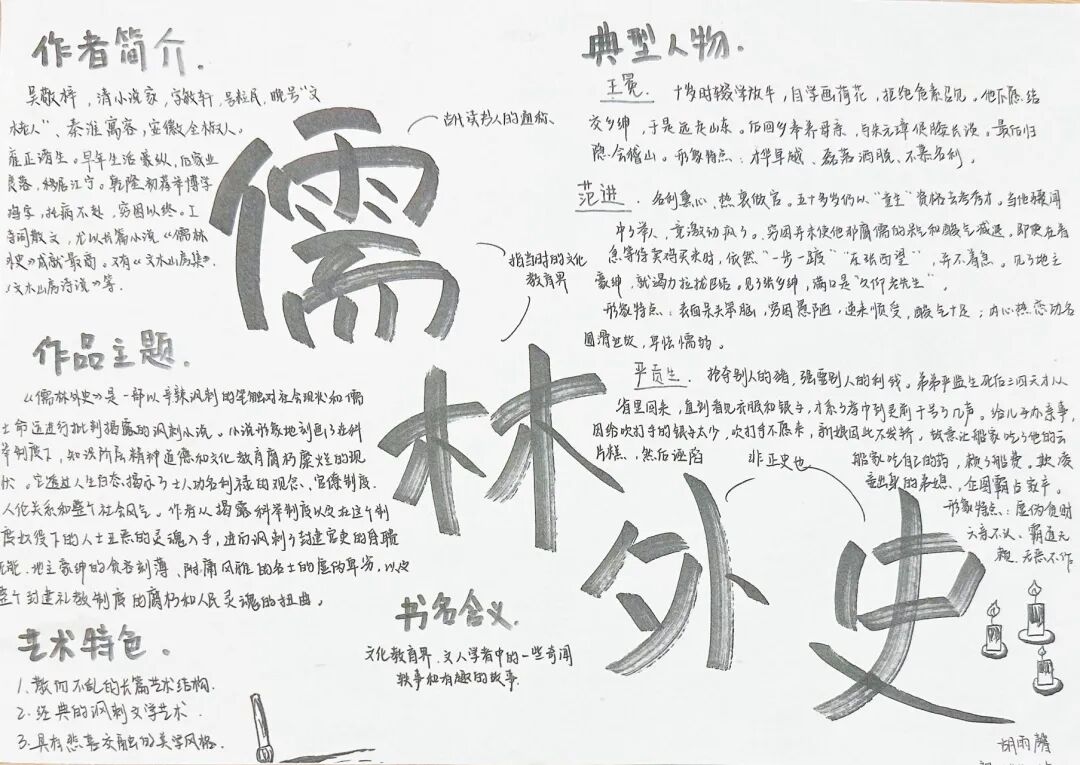 作者简介.
吴敬梓,清小说家,字敏轩,号粒民,晚号"文
木老人"、秦淮寓客,安徽全椒人。
雍正诸生。早年生活豪纵,后家业
衰落,移居江宁。乾隆初荐举博学
鸿字,托病不赴,穷困以终。工
诗词散文,尤以长篇小说《儒林
外史》成就最高。又有《文木山房集》、
《文木山房诗说》等.
作品主题.
《儒林外史》是一部以辛辣讽刺的笔触对社会现状和儒
士命运进行批判揭露的讽刺小说。小说形象地刻画了在科
举制度下,知识阶层精神道德和文化教育腐朽糜烂的现
状。它透过人生百态,揭示了士人功名利禄的观念、官僚制度、
人伦关系和整个社会风气。作者从揭露科举制度以及在这个制
度奴役下的人士丑恶的灵魂入手,进而讽刺了封建官吏的昏聩
无能、地主豪绅的贪吝刻薄、附庸风雅的名士的虚伪卑劣,以及
整个封建礼教制度的腐朽和人民灵魂的扭曲。
艺术特色.
1.散而不乱的长篇艺术结构.
2.经典的讽刺文学艺术.
3.具有悲喜交融的美学风格.
儒林外史
古代读书人的通称、
指当时的文化
教育界
非正史也
书名含义.
文化教育界、文人学者中的一些奇闻
轶事和有趣的故事.
典型人物.
王冕. 十岁时辍学放牛,自学画荷花,拒绝危素召见。他不愿结
交乡绅,于是远走山东。后回乡奉养母亲,与朱元璋促膝长谈。最后归
隐会稽山。形象特点:才华卓越、磊落洒脱、不慕名利。
范进. 名利熏心、热衷做官。五十多岁仍以"童生"资格去考秀才。当他骤闻
中了举人,竟激动疯了。穷困并未使他那腐儒的呆气和酸气减退,即使在着
急等待卖鸡买米时,依然"一步一踱""东张西望",并不着急。见了地主
豪绅,就竭力拉拢巴结。见了张乡绅,满口是"久仰老先生".
形象特点:表面呆头笨脑,穷困愚陋,逆来顺受,酸气十足;内心热恋功名
圆滑世故,卑怯懦弱。
严贡生. 抢夺别人的猪,强要别人的利钱。弟弟严监生死后三四天才从
省里回来,直到看见衣服和银子,才系了孝巾到灵前干号了几声。给儿子办亲事,
因给吹打手的银子太少,吹打手不愿来,新娘因此不发轿。故意让船家吃了他的云
片糕,然后诬陷
船家吃自己的药,赖了船费。欺凌
妾出身的弟媳,企图霸占家产。
形象特点:虚伪贪财
六亲不认、霸道无
赖、无恶不作
胡雨馨